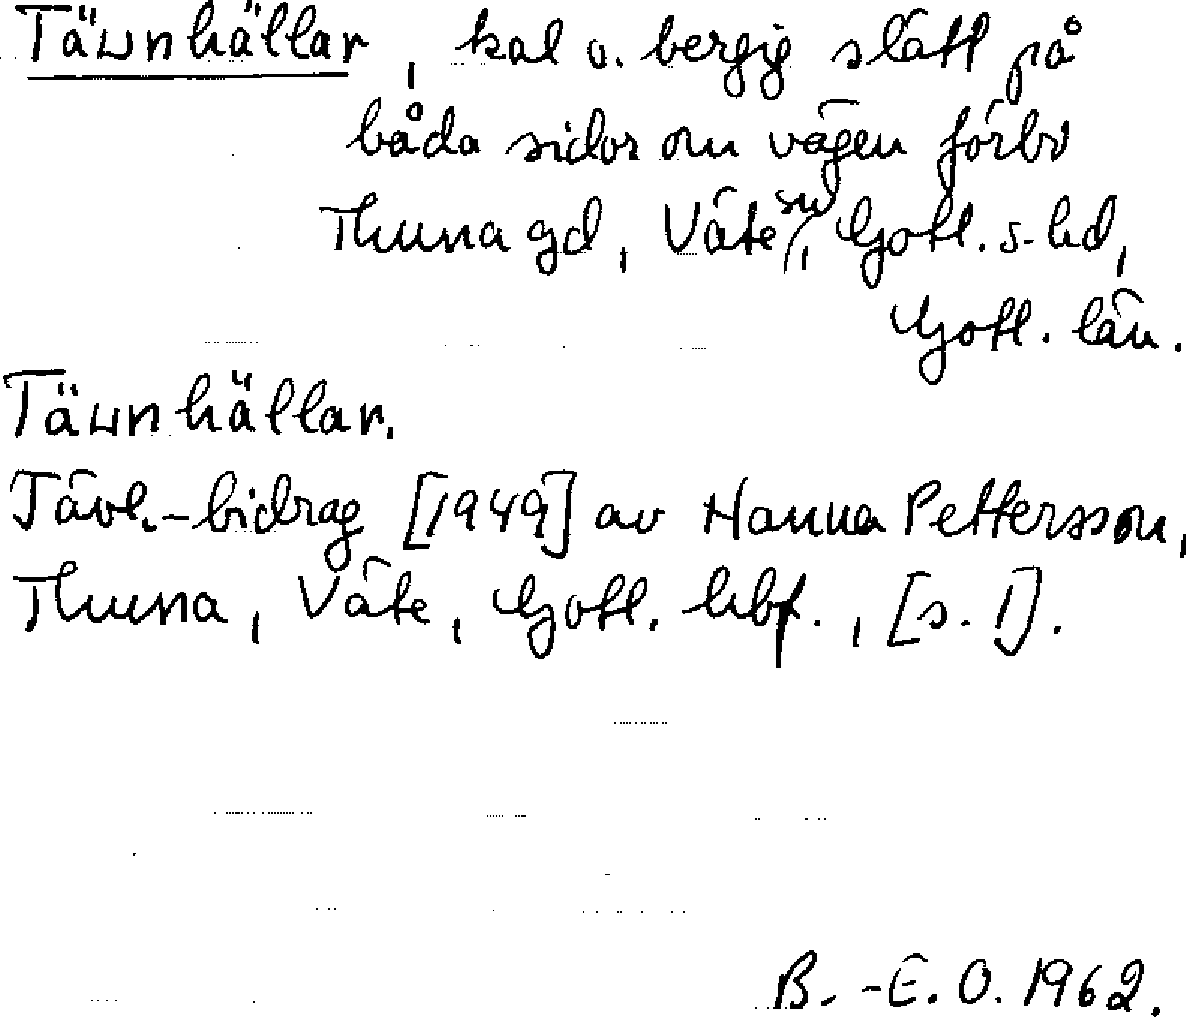 Täunhällar, kal o. bergig slätt på
båda sidor om vägen förbi
Thuna gd, Väte sn, Gotl. s. hd,
Gotl. län.
Täunhällar.
Tävl.-bidrag [1949] av Hanna Pettersson,
Thuna, Väte, Gotl. hbf., [s. 1].
B.-E. O. 1962.